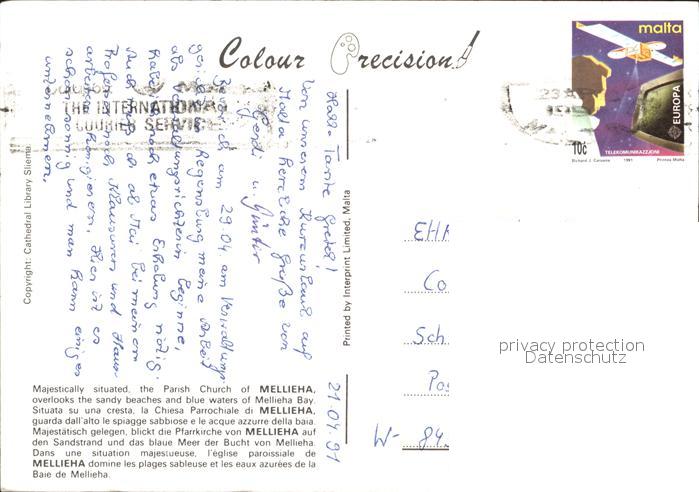 Colour Precision
malta
EUROPA
10c
TELEKOMUNIKAZZJONI
Richard J. Caruana 1991 Printex Malta
THE INTERNATIONAL
COURIER SERVICE
21.04.91
Hallo Tante Gretel!
Von unserem Kurzurlaub auf
Malta herzliche Grüße von
Heidi u. Günter
Bevor ich am 29.04. am Verwaltungs-
gericht Regensburg meine Arbeit
als Verwaltungsrichterin beginne,
habe ich noch etwas Erholung nötig.
Auch ich ab Mai bei meinem
Prof. Klausuren und Haus-
arbeiten korrigieren. Hier ist es
schön sonnig und man kann einiges
unternehmen.
Copyright: Cathedral Library Sliema.
Printed by Interprint Limited, Malta
EHA
Co
Sch
Pos
W- 84
privacy protection
Datenschutz
Majestically situated, the Parish Church of MELLIEHA,
overlooks the sandy beaches and blue waters of Mellieha Bay.
Situata su una cresta, la Chiesa Parrochiale di MELLIEHA,
guarda dall'alto le spiagge sabbiose e le acque azzurre della baia.
Majestätisch gelegen, blickt die Pfarrkirche von MELLIEHA auf
den Sandstrand und das blaue Meer der Bucht von Mellieha.
Dans une situation majestueuse, l'église paroissiale de
MELLIEHA domine les plages sableuse et les eaux azurées de la
Baie de Mellieha.